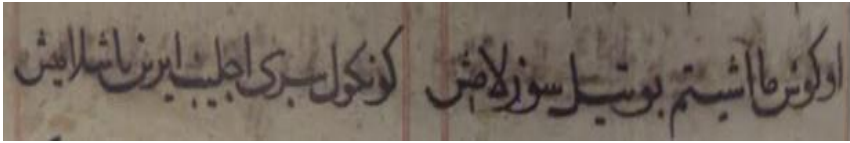 اوکوش ما اشیتم بو تیل سوزلامش کونکول سری اجلیب ایرین باشلامش